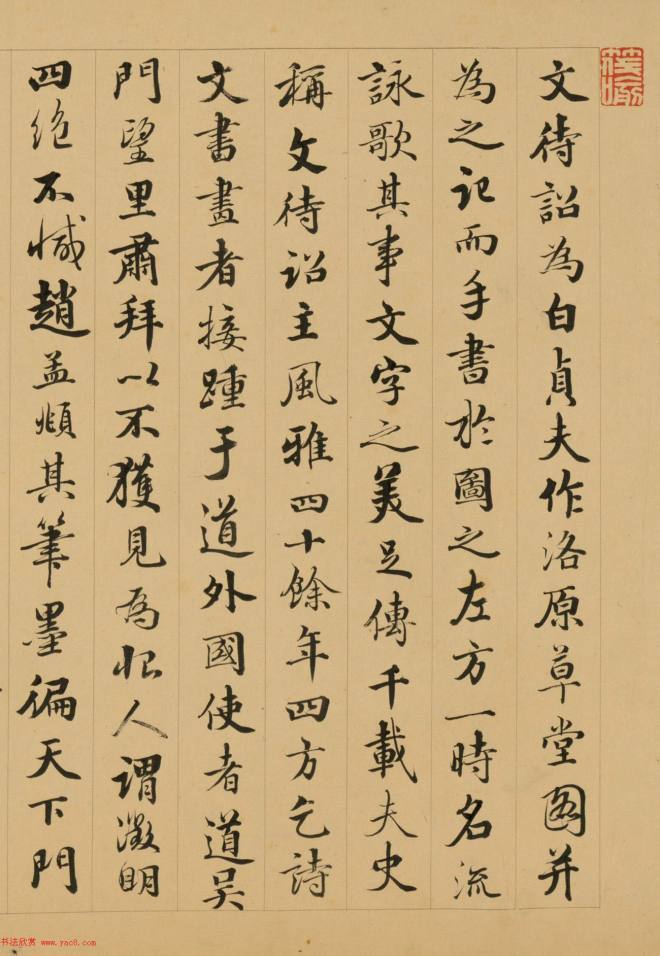 文待詔為白貞夫作洛原草堂圖并
為之記而手書於圖之左方一時名流
詠歌其事文字之美足傳千載夫史
稱文待詔主風雅四十餘年四方乞詩
文書畫者接踵于道外國使者道吳
門望里肅拜以不獲見為恨人謂徵明
四絕不減趙孟頫其筆墨徧天下門
书法欣赏 www.yac8.com